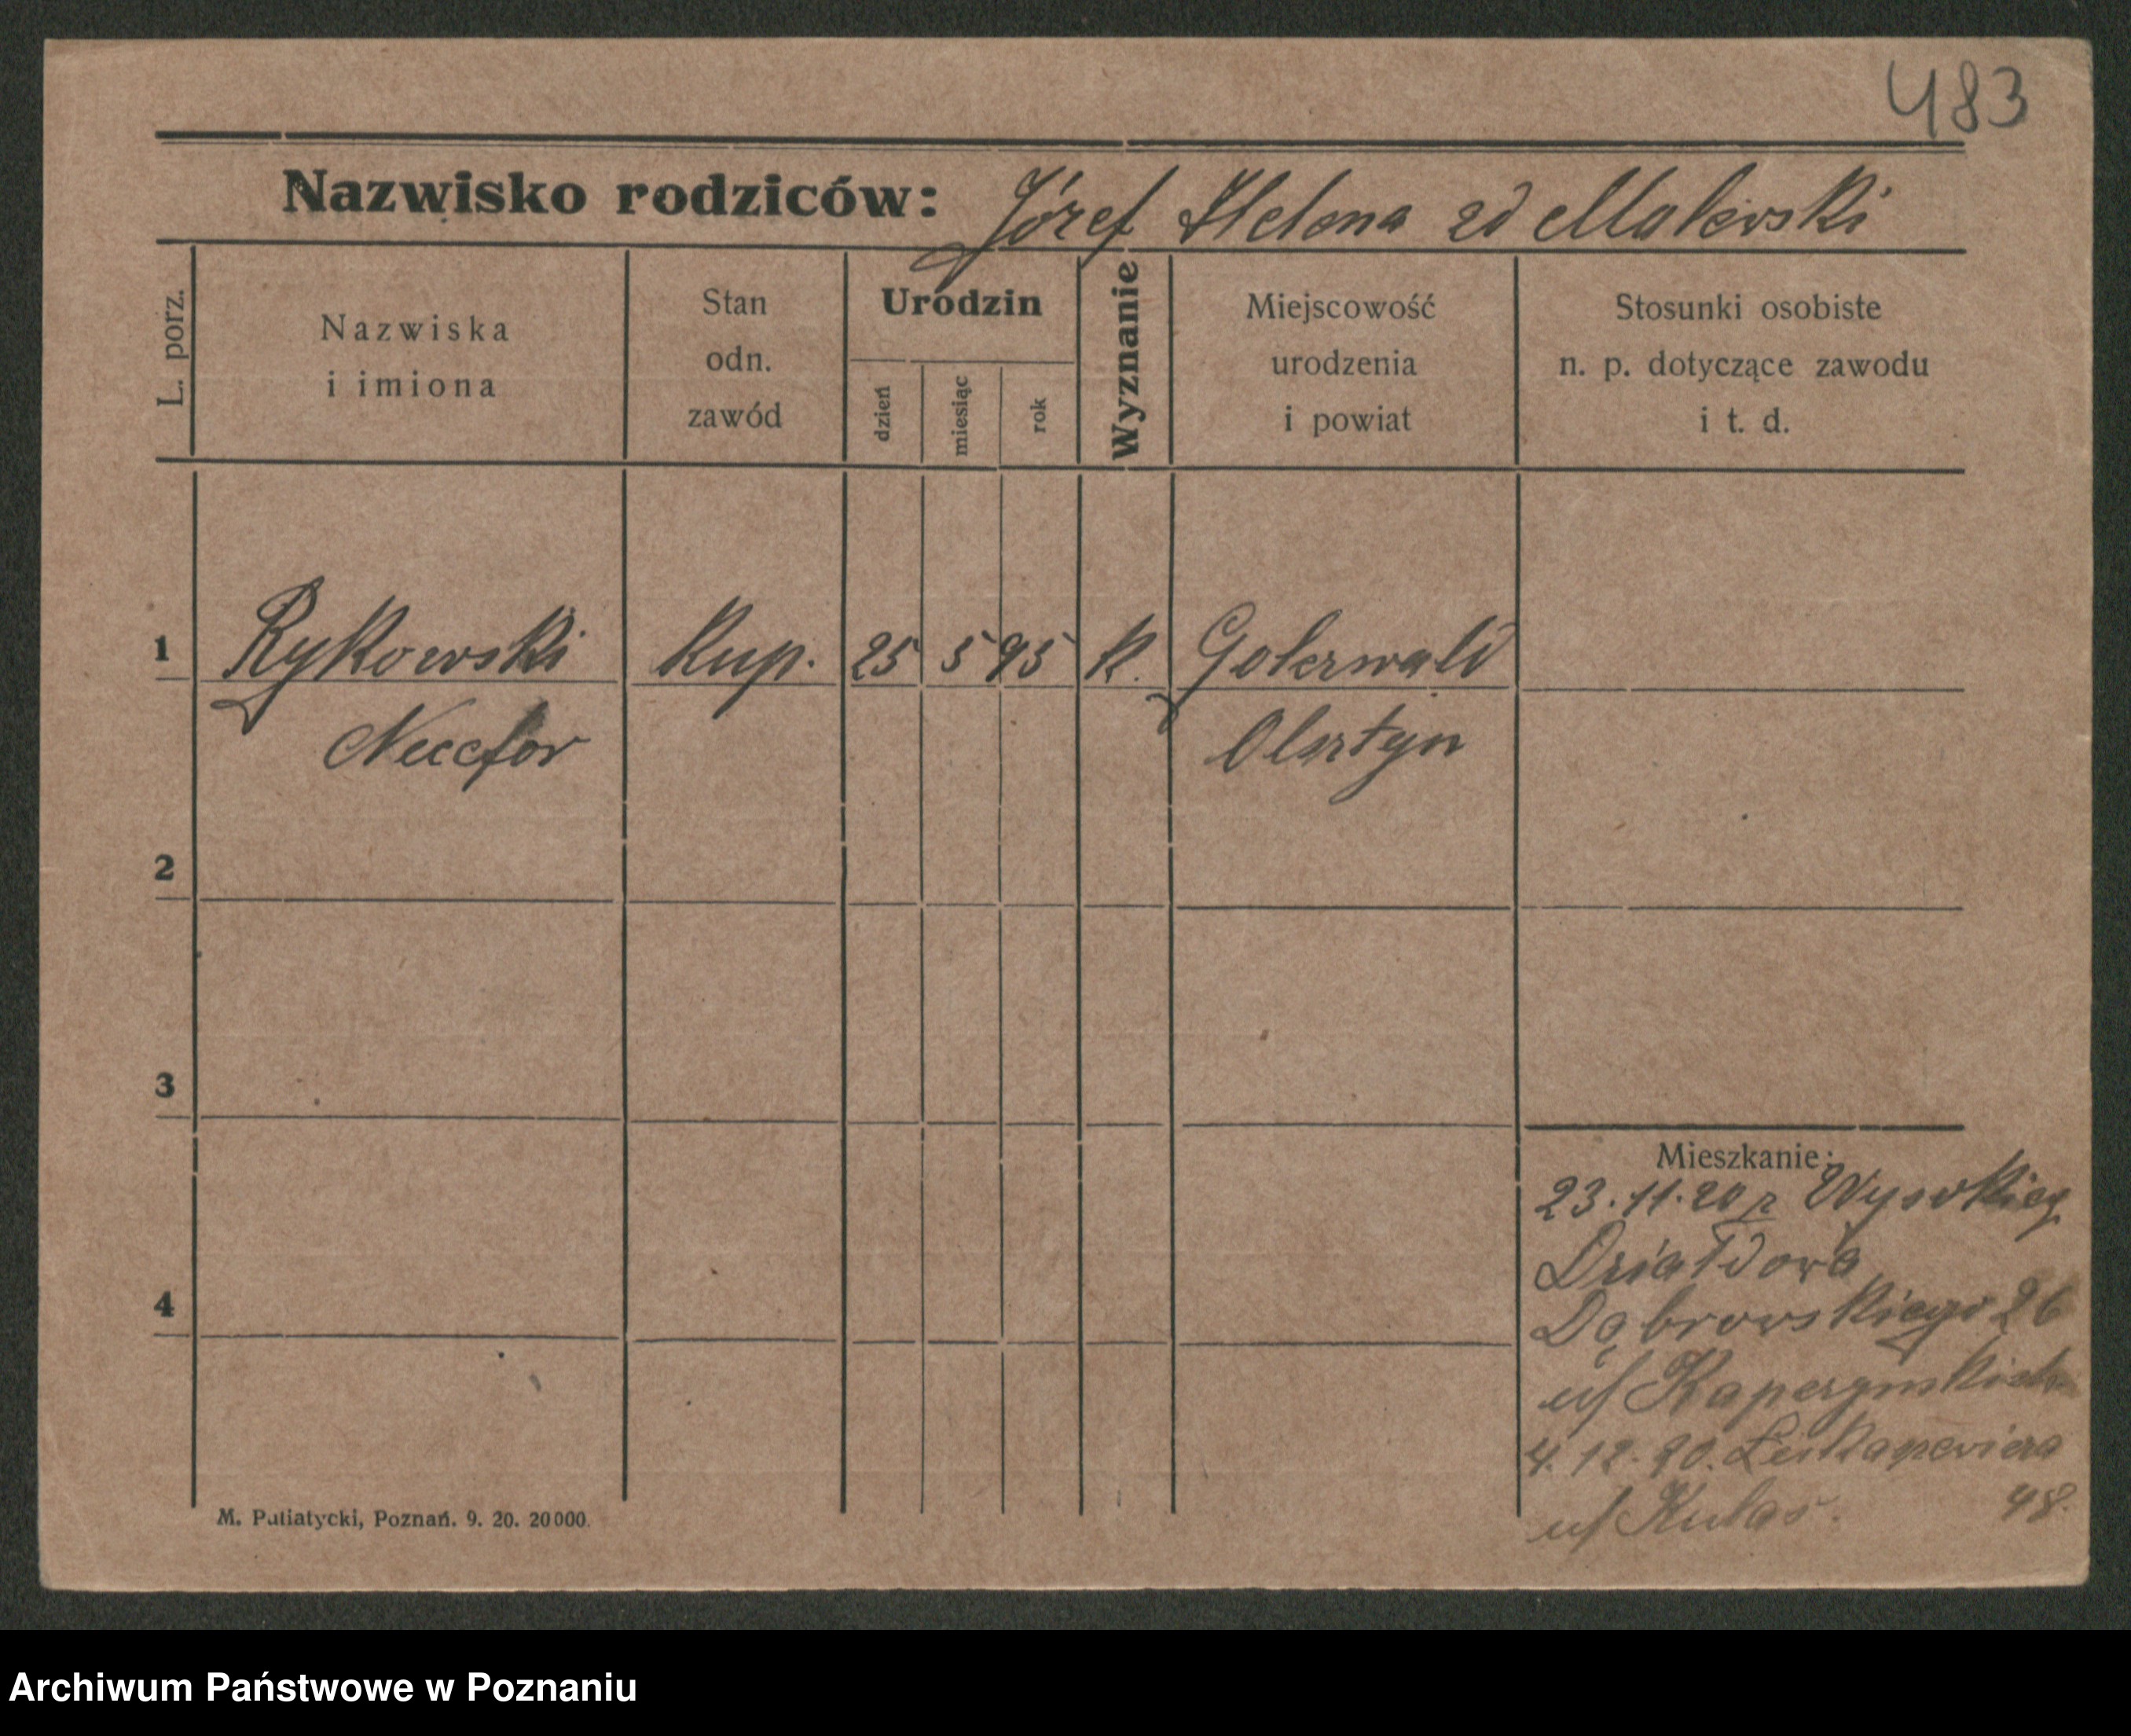 483
Nazwisko rodziców: Józef Helena zd Malewski
L. porz.
Nazwiska
i imiona
Stan
odn.
zawód
Urodzin
dzień
miesiąc
rok
Wyznanie
Miejscowość
urodzenia
i powiat
Stosunki osobiste
n. p. dotyczące zawodu
i t. d.
1 Rykowski Kup. 25 5 95 k.
Olsztyn
2
3
4
Mieszkanie:
23.11.20 z
Działdowa
Dąbrowskiego 26
4.12.20.
48.
M. Putiatycki, Poznań. 9. 20. 20000.
Archiwum Państwowe w Poznaniu